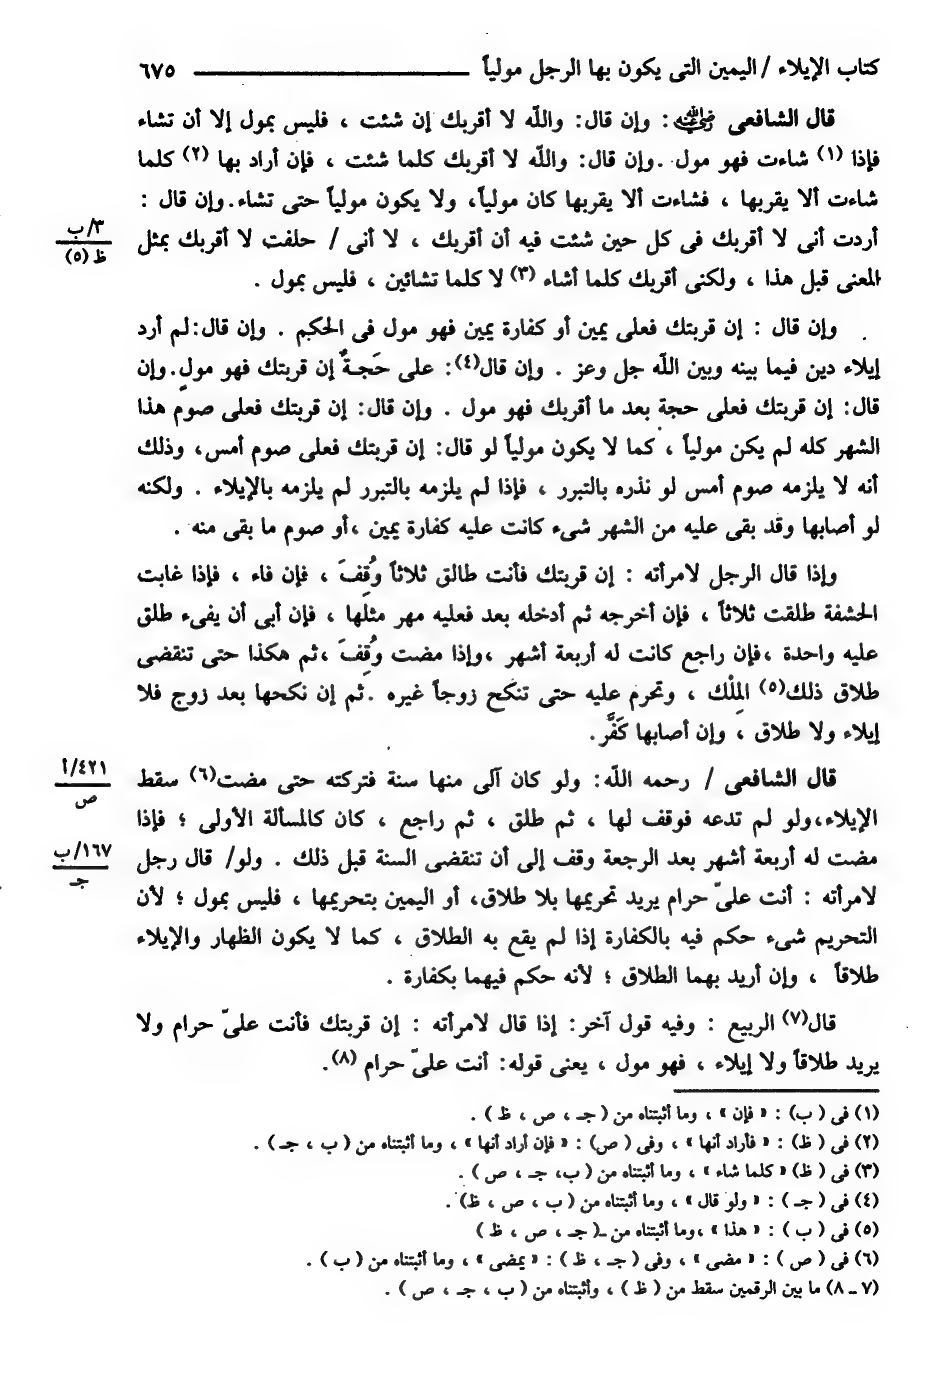 كتاب الإيلاء / اليمين التى يكون بها الرجل مولياً ــــــــــــــــــــ ٦٧٥
قال الشافعى رضي الله عنه : وإن قال: والله لا أقربك إن شئت ، فليس بمول إلا أن تشاء
فإذا (١) شاءت فهو مول . وإن قال: والله لا أقربك كلما شئت ، فإن أراد بها (٢) كلما
شاءت ألا يقربها ، فشاءت ألا يقربها كان مولياً، ولا يكون مولياً حتى تشاء. وإن قال :
أردت أنى لا أقربك فى كل حين شئت فيه أن أقربك ، لا أنى / حلفت لا أقربك بمثل
المعنى قبل هذا ، ولكنى أقربك كلما أشاء (٣) لا كلما تشائين ، فليس بمول .
٣/ب
ظ (٥)
وإن قال : إن قربتك فعلى يمين أو كفارة يمين فهو مول فى الحكم . وإن قال: لم أرد
إيلاء دين فيما بينه وبين الله جل وعز . وإن قال(٤): على حَجةٌ إن قربتك فهو مولٍ. وإن
قال: إن قربتك فعلى حجة بعد ما أقربك فهو مول . وإن قال: إن قربتك فعلى صوم هذا
الشهر كله لم يكن مولياً ، كما لا يكون مولياً لو قال: إن قربتك فعلى صوم أمس، وذلك
أنه لا يلزمه صوم أمس لو نذره بالتبرر ، فإذا لم يلزمه بالتبرر لم يلزمه بالإيلاء . ولكنه
لو أصابها وقد بقى عليه من الشهر شىء كانت عليه كفارة يمين ،أو صوم ما بقى منه .
وإذا قال الرجل لامرأته : إن قربتك فأنت طالق ثلاثاً وُقِفَ ، فإن فاء ، فإذا غابت
الحشفة طلقت ثلاثاً ، فإن أخرجه ثم أدخله بعد فعليه مهر مثلها ، فإن أبى أن يفىء طلق
عليه واحدة ،فإن راجع كانت له أربعة أشهر ،وإذا مضت وُقِفَ ،ثم هكذا حتى تنقضى
طلاق ذلك(٥) المِلْك ، وتحرم عليه حتى تنكح زوجاً غيره .ثم إن نكحها بعد زوج فلا
إيلاء ولا طلاق ، وإن أصابها كَفَّر.
قال الشافعى / رحمه الله : ولو كان آلى منها سنة فتركته حتى مضت(٦) سقط
الإيلاء،ولو لم تدعه فوقف لها ، ثم طلق ، ثم راجع ، كان كالمسألة الأولى ؛ فإذا
مضت له أربعة أشهر بعد الرجعة وقف إلى أن تنقضى السنة قبل ذلك . ولو/ قال رجل
لامرأته : أنت علىّ حرام يريد تحريمها بلا طلاق، أو اليمين بتحريمها ، فليس بمول ؛ لأن
التحريم شىء حكم فيه بالكفارة إذا لم يقع به الطلاق ، كما لا يكون الظهار والإيلاء
طلاقاً ، وإن أريد بهما الطلاق ؛ لأنه حكم فيهما بكفارة .
٤٢١/أ
ص
١٦٧/ب
جـ
قال(٧) الربيع : وفيه قول آخر: إذا قال لامرأته : إن قربتك فأنت علىّ حرام ولا
يريد طلاقاً ولا إيلاء ، فهو مول ، يعنى قوله: أنت علىّ حرام (٨).
(١) فى ( ب) : « فإن » ، وما أثبتناه من ( جـ ، ص ، ظ ) .
(٢) فى ( ظ) : « فأراد أنها » ، وفى ( ص) : « فإن أراد أنها » ، وما أثبتناه من ( ب ، جـ ) .
(٣) فى ( ظ) « كلما شاء » ، وما أثبتناه من ( ب، جـ ، ص ) .
(٤) فى ( جـ ) : « ولو قال » ، وما أثبتناه من ( ب ، ص ، ظ) .
(٥) فى ( ب ) : « هذا » ،وما أثبتناه من ( جـ ، ص ، ظ )
(٦) فى ( ص ) : « مضى » ، وفى ( جـ ، ظ ) : « يمضى » ، وما أثبتناه من ( ب ) .
(٧ ـ ٨) ما بين الرقمين سقط من ( ظ ) ، وأثبتناه من ( ب ، جـ ، ص ) .